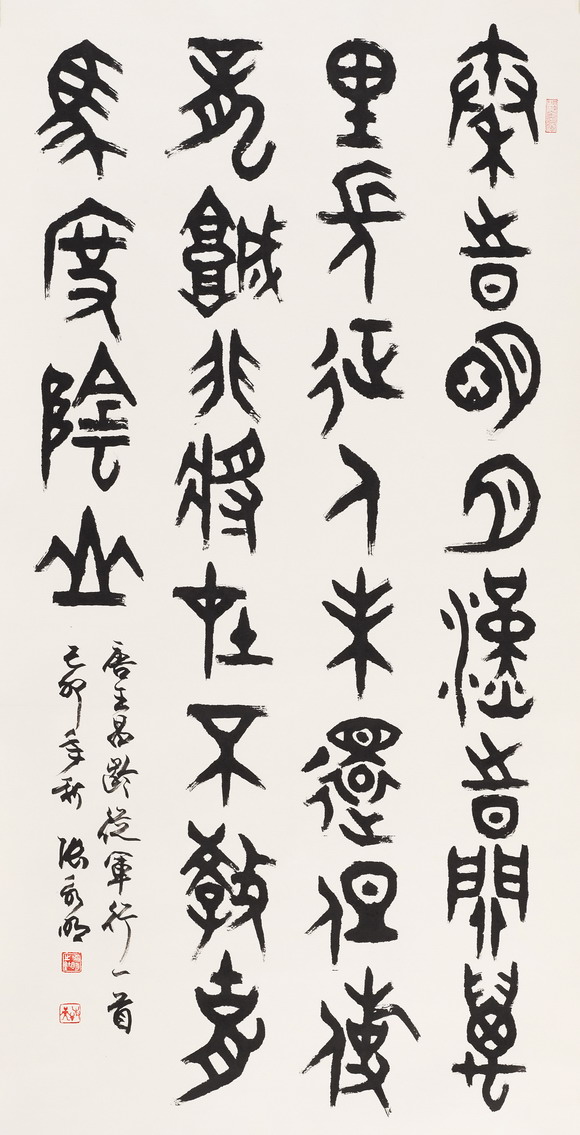 秦時明月漢時關萬
里長征人未還但使
龍城飛將在不教胡
馬度陰山
唐王昌齡從軍行一首
己卯年秋 張永明